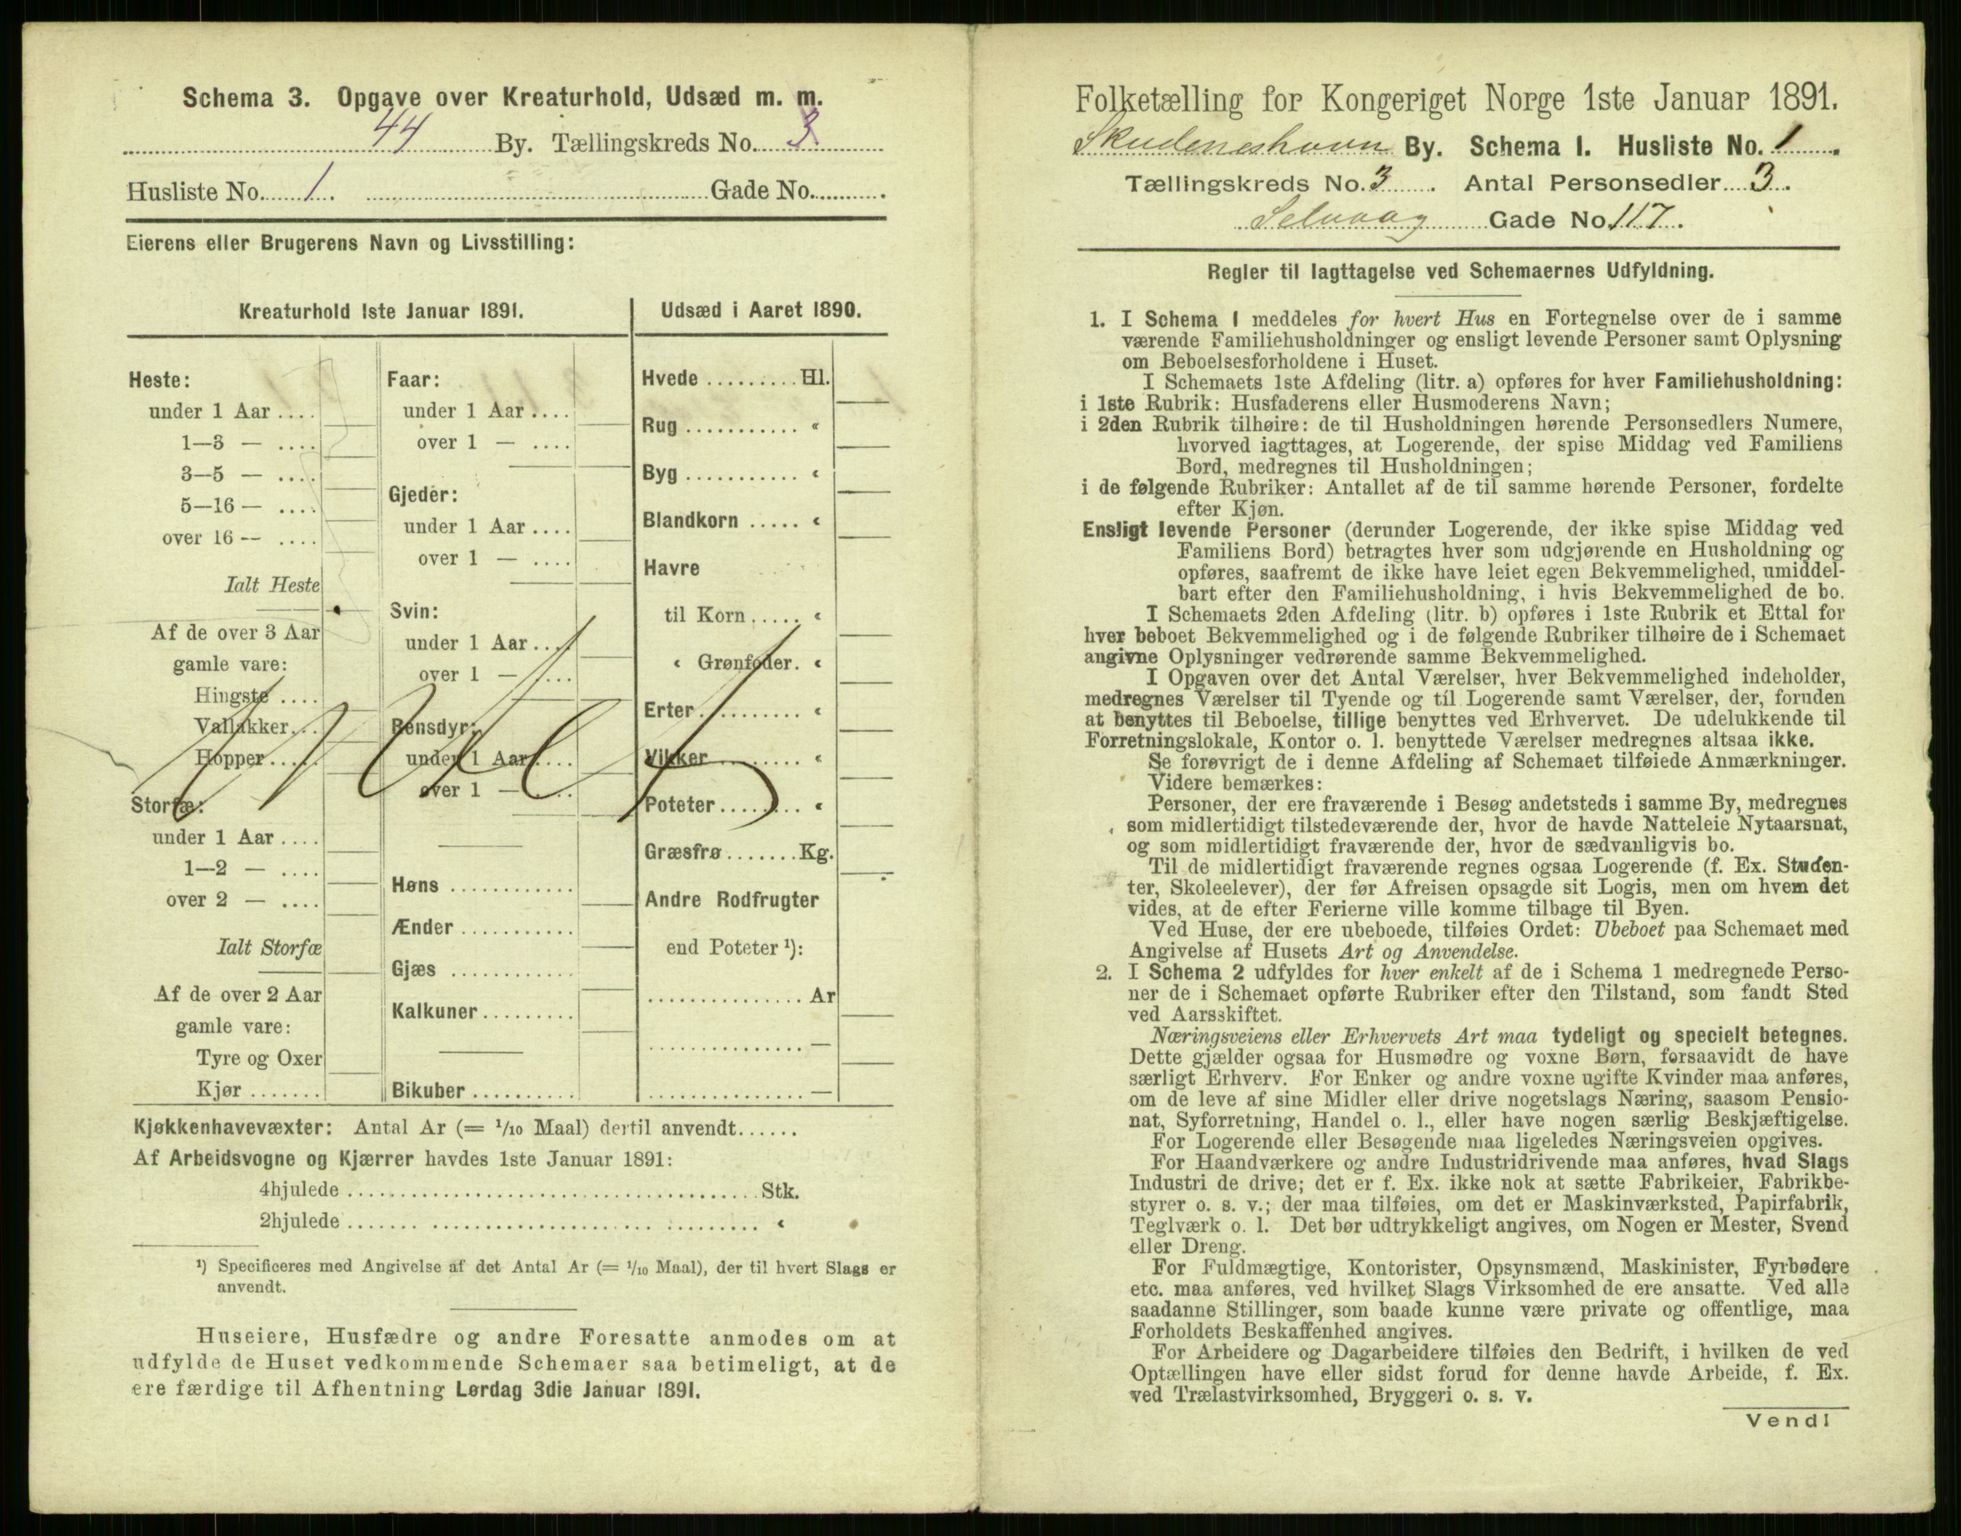 Schema 3. Opgave over Kreaturhold, Udsæd m. m.
44 By. Tællingskreds No. 3
Husliste No. 1. Gade No.
Eierens eller Brugerens Navn og Livsstilling:
Kreaturhold 1ste Januar 1891.
Heste:
under 1 Aar ....
1—3 — ....
3—5 — ....
5—16 — ....
over 16 — ....
Ialt Heste
Af de over 3 Aar
gamle vare:
Hingste ....
Vallakker....
Hopper ....
Storfæ:
under 1 Aar ....
1—2 — ....
over 2 — ....
Ialt Storfæ
Af de over 2 Aar
gamle vare:
Tyre og Oxer
Kjør .......
Faar:
under 1 Aar ....
over 1 — ....
Gjeder:
under 1 Aar ....
over 1 — ....
Svin:
under 1 Aar ....
over 1 — ....
Rensdyr:
under 1 Aar ....
over 1 — ....
Høns ............
Ænder ...........
Gjæs ............
Kalkuner .........
Bikuber ..........
Udsæd i Aaret 1890.
Hvede ......... Hl.
Rug ........... «
Byg ........... «
Blandkorn ..... «
Havre
til Korn ..... «
« Grønfoder. «
Erter ......... «
Vikker ........ «
Poteter ....... «
Græsfrø ....... Kg.
Andre Rodfrugter
end Poteter ¹):
............... Ar
............... —
............... —
Kjøkkenhavevæxter: Antal Ar (= 1/10 Maal) dertil anvendt......
Af Arbeidsvogne og Kjærrer havdes 1ste Januar 1891:
4hjulede ..................................... Stk.
2hjulede ..................................... «
¹) Specificeres med Angivelse af det Antal Ar (= 1/10 Maal), der til hvert Slags er
anvendt.
Huseiere, Husfædre og andre Foresatte anmodes om at
udfylde de Huset vedkommende Schemaer saa betimeligt, at de
ere færdige til Afhentning Lørdag 3die Januar 1891.
Folketælling for Kongeriget Norge 1ste Januar 1891.
Skudeneshavn By. Schema 1. Husliste No. 1.
Tællingskreds No. 3. Antal Personsedler 3.
Selvaag Gade No. 117.
Regler til Iagttagelse ved Schemaernes Udfyldning.
1. I Schema 1 meddeles for hvert Hus en Fortegnelse over de i samme
værende Familiehusholdninger og ensligt levende Personer samt Oplysning
om Beboelsesforholdene i Huset.
I Schemaets 1ste Afdeling (litr. a) opføres for hver Familiehusholdning:
i 1ste Rubrik: Husfaderens eller Husmoderens Navn;
i 2den Rubrik tilhøire: de til Husholdningen hørende Personsedlers Numere,
hvorved iagttages, at Logerende, der spise Middag ved Familiens
Bord, medregnes til Husholdningen;
i de følgende Rubriker: Antallet af de til samme hørende Personer, fordelte
efter Kjøn.
Ensligt levende Personer (derunder Logerende, der ikke spise Middag ved
Familiens Bord) betragtes hver som udgjørende en Husholdning og
opføres, saafremt de ikke have leiet egen Bekvemmelighed, umiddel-
bart efter den Familiehusholdning, i hvis Bekvemmelighed de bo.
I Schemaets 2den Afdeling (litr. b) opføres i 1ste Rubrik et Ettal for
hver beboet Bekvemmelighed og i de følgende Rubriker tilhøire de i Schemaet
angivne Oplysninger vedrørende samme Bekvemmelighed.
I Opgaven over det Antal Værelser, hver Bekvemmelighed indeholder,
medregnes Værelser til Tyende og til Logerende samt Værelser, der, foruden
at benyttes til Beboelse, tillige benyttes ved Erhvervet. De udelukkende til
Forretningslokale, Kontor o. l. benyttede Værelser medregnes altsaa ikke.
Se forøvrigt de i denne Afdeling af Schemaet tilføiede Anmærkninger.
Videre bemærkes:
Personer, der ere fraværende i Besøg andetsteds i samme By, medregnes
som midlertidigt tilstedeværende der, hvor de havde Natteleie Nytaarsnat,
og som midlertidigt fraværende der, hvor de sædvanligvis bo.
Til de midlertidigt fraværende regnes ogsaa Logerende (f. Ex. Studen-
ter, Skoleelever), der før Afreisen opsagde sit Logis, men om hvem det
vides, at de efter Ferierne ville komme tilbage til Byen.
Ved Huse, der ere ubeboede, tilføies Ordet: Ubeboet paa Schemaet med
Angivelse af Husets Art og Anvendelse.
2. I Schema 2 udfyldes for hver enkelt af de i Schema 1 medregnede Perso-
ner de i Schemaet opførte Rubriker efter den Tilstand, som fandt Sted
ved Aarsskiftet.
Næringsveiens eller Erhvervets Art maa tydeligt og specielt betegnes.
Dette gjælder ogsaa for Husmødre og voxne Børn, forsaavidt de have
særligt Erhverv. For Enker og andre voxne ugifte Kvinder maa anføres,
om de leve af sine Midler eller drive nogetslags Næring, saasom Pensio-
nat, Syforretning, Handel o. l., eller have nogen særlig Beskjæftigelse.
For Logerende eller Besøgende maa ligeledes Næringsveien opgives.
For Haandværkere og andre Industridrivende maa anføres, hvad Slags
Industri de drive; det er f. Ex. ikke nok at sætte Fabrikeier, Fabrikbe-
styrer o. s. v.; der maa tilføies, om det er Maskinværksted, Papirfabrik,
Teglværk o. l. Det bør udtrykkeligt angives, om Nogen er Mester, Svend
eller Dreng.
For Fuldmægtige, Kontorister, Opsynsmænd, Maskinister, Fyrbødere
etc. maa anføres, ved hvilket Slags Virksomhed de ere ansatte. Ved alle
saadanne Stillinger, som baade kunne være private og offentlige, maa
Forholdets Beskaffenhed angives.
For Arbeidere og Dagarbeidere tilføies den Bedrift, i hvilken de ved
Optællingen have eller sidst forud for denne havde Arbeide, f. Ex.
ved Trælastvirksomhed, Bryggeri o. s. v.
Vend!